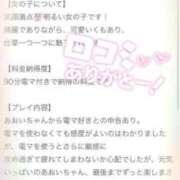 【女の子について】
笑顔満点
明るい女の子です！
綺麗でありながら、可愛いくもあり、
仕草一つ一つに
口コミ
ありがとー！
【料金納得度】
90分電マ付きで納得の料
【プレイ内容】
あおいちゃんから電マ好きとの申告あり、
電マは使わなくても感度がよいのはわかりましたが、
電マを使うとさらに
攻め過ぎて疲れてしまわないか心配でしたが、元気
いっぱいのあおいちゃん、